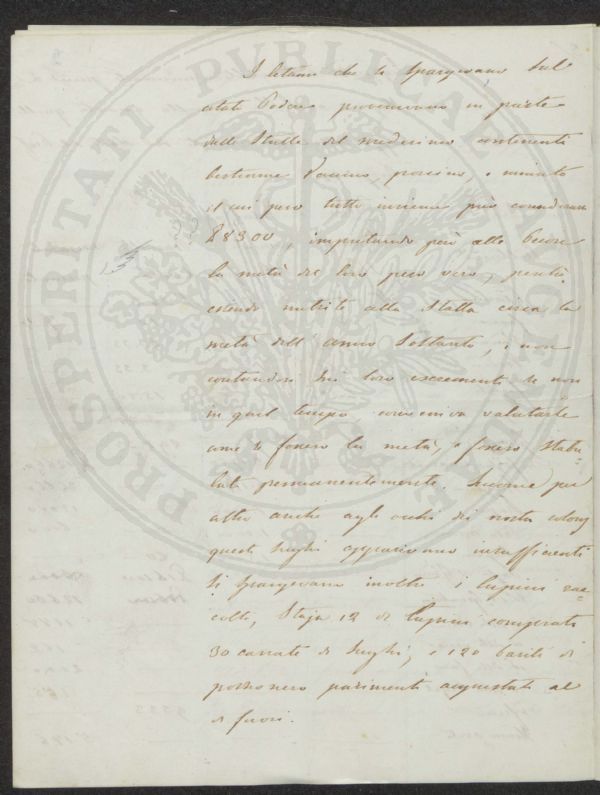 PROSPERITATI PVBLICAE AVGENDAE
I letami che si spargevano sul
citato Podere provenivano in parte
dalle Stalle del medesimo contenenti
bestiame Vaccino, porcino, e minuto
il cui peso tutto insieme può considerarsi
£8300, imputando però alle Pecore
la metà del loro peso vero, perché
essendo nutrite alla Stalla circa la
metà dell' anno soltanto, e non
contandosi sui loro escrementi se non
in quel tempo conveniva valutarle
come se fossero la metà, e fossero stabu=
late permanentemente. Siccome per
altro anche agli occhi dei nostri coloni
questi sughi apparivano insufficienti
si spargevano inoltre i lupini rac=
colti, Staja 12 di lupini comprati
30 carrate di sughi, e 120 barili di
pozzo nero parimenti acquistati al
di fuori.